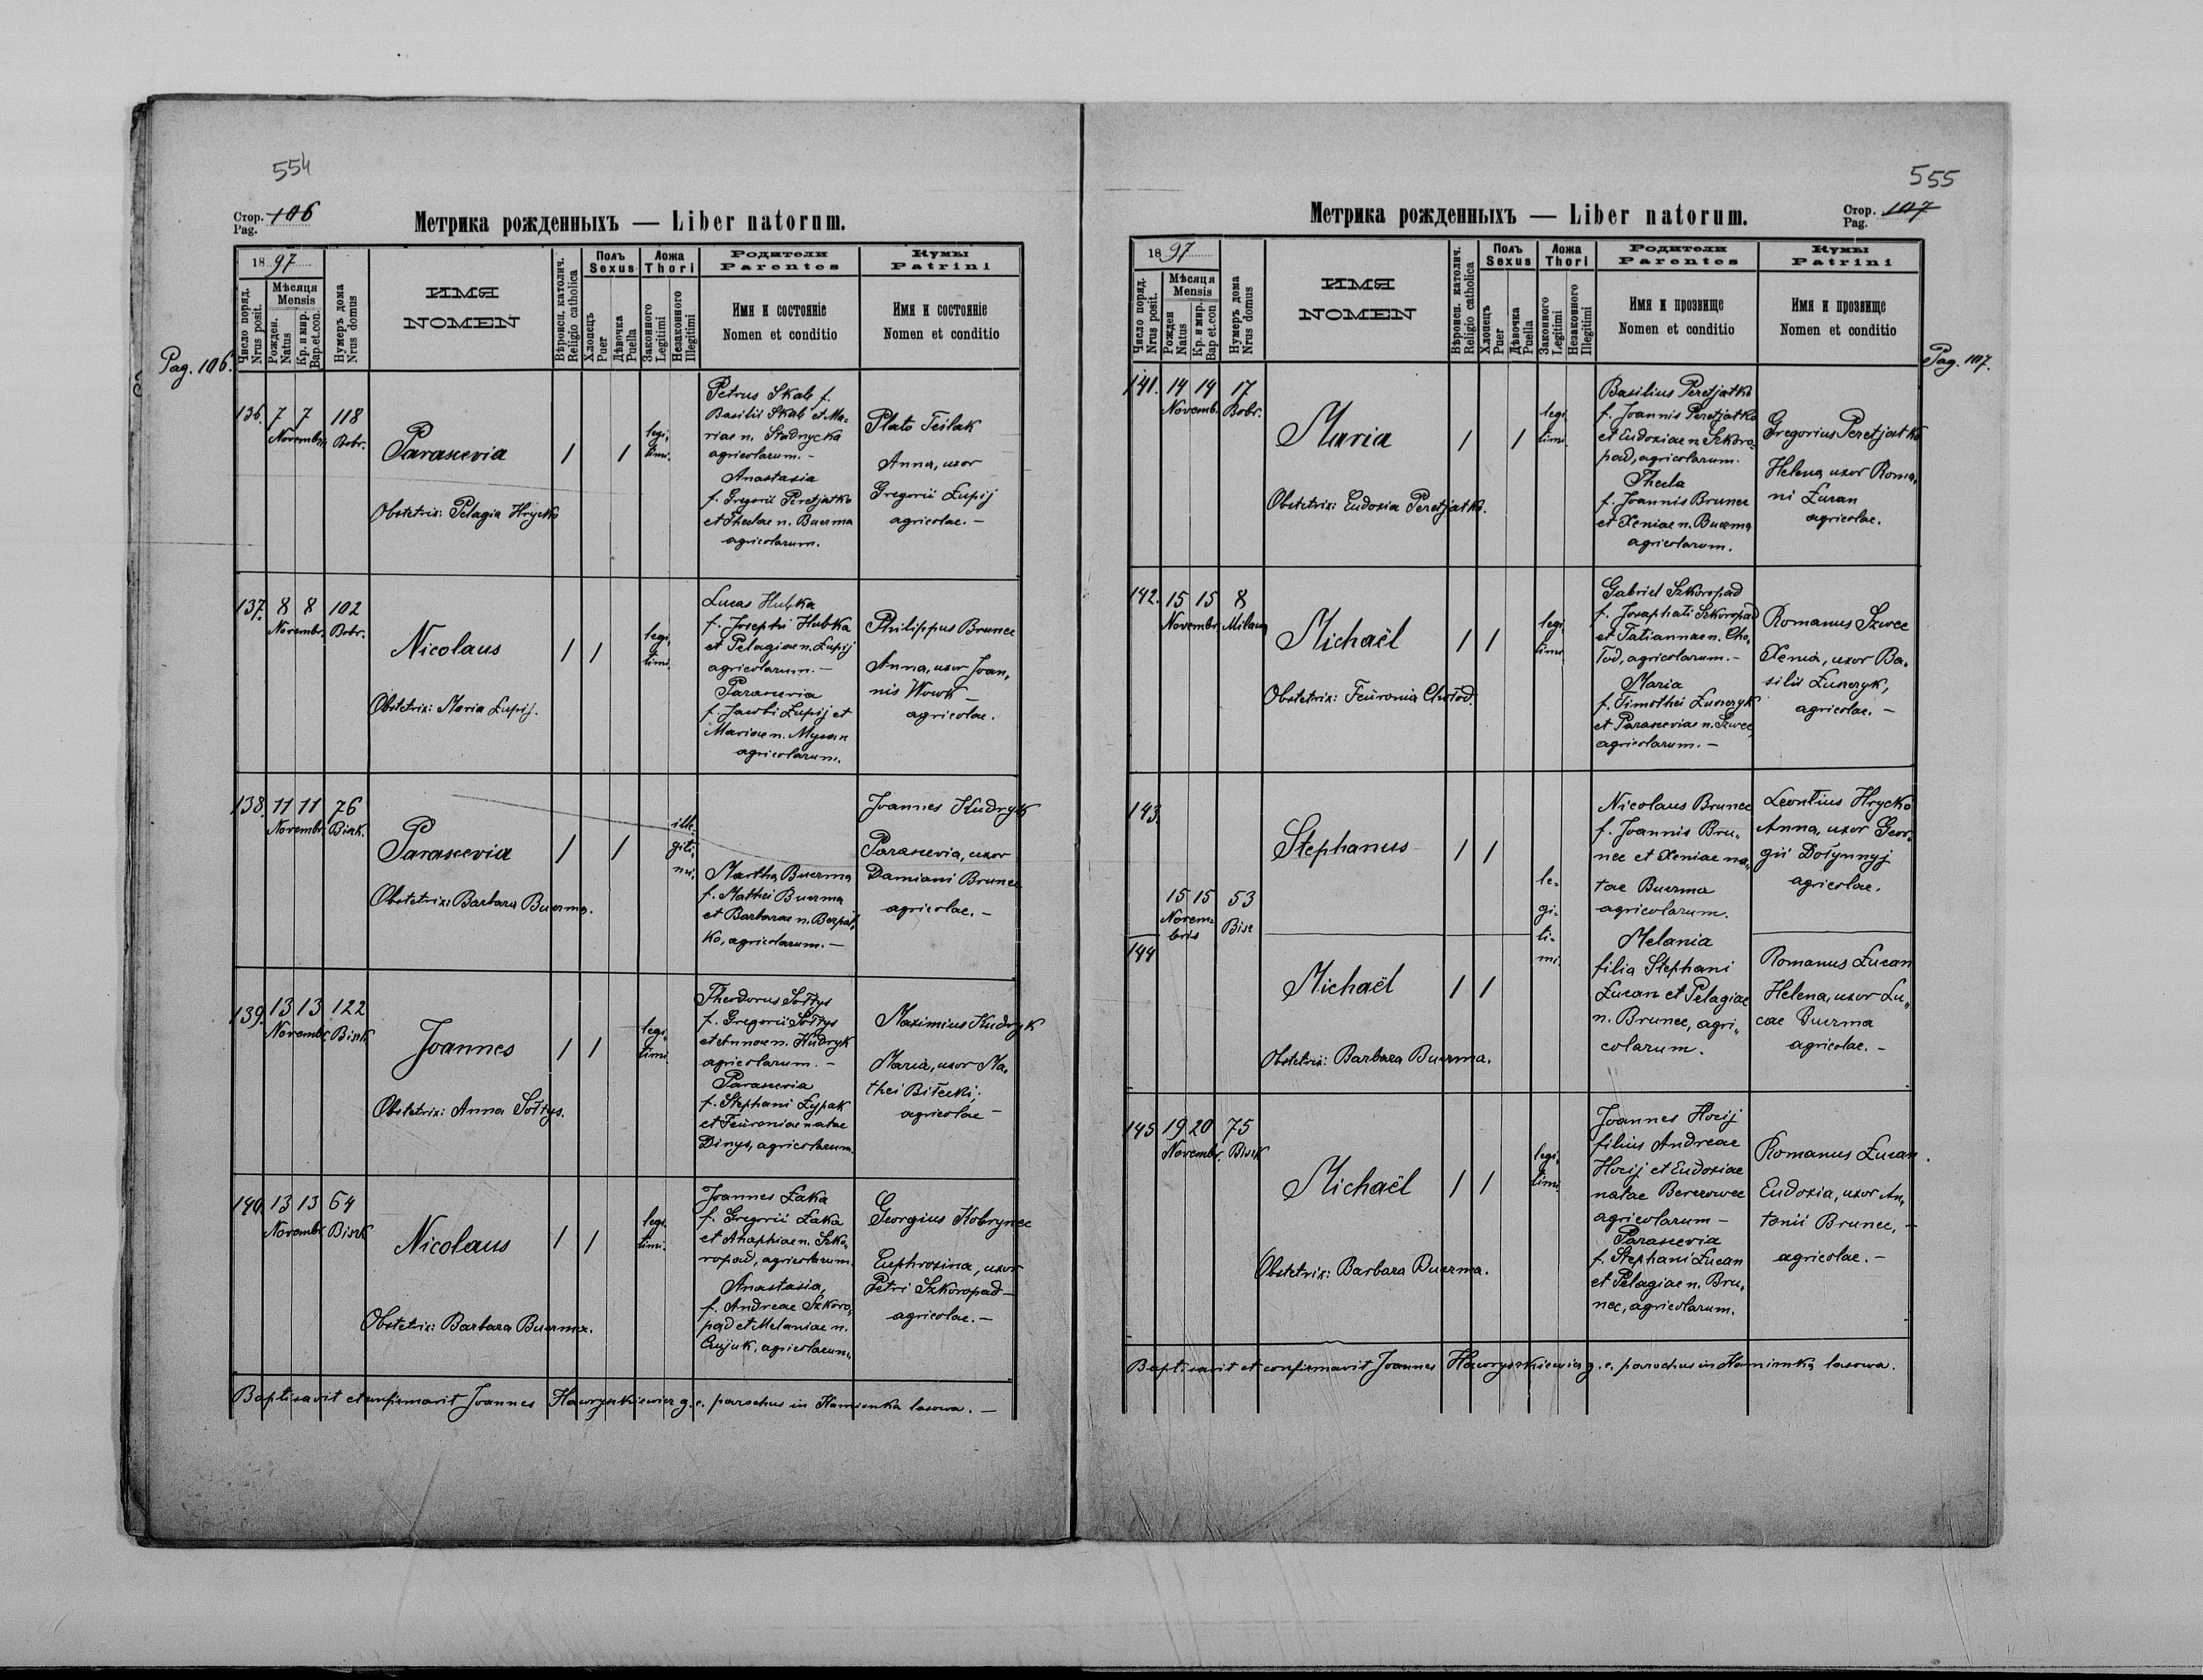 554
Стор. 106
Pag.
Метрика рожденныхъ — Liber natorum.
Pag. 106.
1897
Число поряд. Nrus posit.
Мѣсяця Mensis
Рожден. Natus
Кр. и мир. Bap. et. con.
Нумеръ дома Nrus domus
ИМЯ
NOMEN
Вѣроисп. католич. Religio catholica
Полъ Sexus
Хлопецъ Puer
Дѣвочка Puella
Ложа Thori
Законного Legitimi
Незаконного Illegitimi
Родители
Parentes
Имя и состояніе
Nomen et conditio
Кумы
Patrini
Имя и состояніе
Nomen et conditio
136. 7 7 118
Novembr. Bobr.
Parascevia
1 1
legi-
timi.
Obstetrix: Pelagia Hrycko
Petrus Skab f.
Basilii Skab et Ma-
riae n. Stadnycka
agricolarum. –
Anastasia
f. Gregorii Peretjatko
et Theclae n. Buczma
agricolarum.
Plato Teslak
Anna, uxor
Gregorii Łupij
agricolae. –
137. 8 8 102
Novembr. Bobr.
Nicolaus
1 1
legi-
timi.
Obstetrix: Maria Łupij.
Lucas Hubka
f. Josephi Hubka
et Pelagiae n. Łupij
agricolarum. –
Parascevia
f. Jacobi Łupij et
Mariae n.
agricolarum.
Philippus Brunec
Anna, uxor Joan-
nis Wowk –
agricolae.
138. 11 11 76
Novembr. Bisk.
Parascevia
1 1
ille-
giti-
mi.
Obstetrix: Barbara Buczma.
Martha Buczma
f. Mathei Buczma
et Barbarae n. Bezpal-
ko, agricolarum. –
Joannes Kudryk
Parascevia, uxor
Damiani Brunec
agricolae. –
139. 13 13 122
Novembr. Bisk.
Joannes
1 1
legi-
timi.
Obstetrix: Anna Sołtys.
Theodorus Sołtys
f. Gregorii Sołtys
et Annae n. Kudryk
agricolarum. –
Parascevia
f. Stephani Łypak
et Feuroniae natae
Dinys, agricolarum.
Maximius Kudryk
Maria, uxor Ma-
thei Biłecki,
agricolae –
140. 13 13 64
Novembr. Bisk
Nicolaus
1 1
legi-
timi.
Obstetrix: Barbara Buczma.
Joannes Łaka
f. Gregorii Łaka
et Ahaphiae n. Szko-
ropad, agricolarum.
Anastasia,
f. Andreae Szkoro-
pad et Melaniae n.
agricolarum.
Georgius Kobrynec
Euphrosina, uxor
Petri Szkoropad –
agricolae. –
Baptisavit et confirmavit Joannes Hawryszkiewicz g. c. parochus in Kamionka lasowa. –
555
Метрика рожденныхъ — Liber natorum.
Стор. 107
Pag.
Pag. 107.
1897
Число поряд. Nrus posit.
Мѣсяця Mensis
Рожден Natus
Кр. и мир. Bap et. con
Нумеръ дома Nrus domus
ИМЯ
NOMEN
Вѣроисп. католич. Religio catholica
Полъ Sexus
Хлопецъ Puer
Дѣвочка Puella
Ложа Thori
Законного Legitimi
Незаконного Illegitimi
Родители
Parentes
Имя и прозвище
Nomen et conditio
Кумы
Patrini
Имя и прозвище
Nomen et conditio
141. 14 14 17
Novemb. Bobr.
Maria
1 1
legi-
timi.
Obstetrix: Eudoxia Peretjatko.
Basilius Peretjatko
f. Joannis Peretjatko
et Eudoxiae n. Szkoro-
pad, agricolarum.
Thecla
f. Joannis Brunec
et Xeniae n. Buczma
agricolarum.
Gregorius Peretjatko
Helena, uxor Roma-
ni Łucan
agricolae.
142. 15 15 8
Novembr.
Michaël
1 1
legi-
timi.
Obstetrix: Feuronia Chołod.
Gabriel Szkoropad
f. Josaphati Szkoropad
et Tatiannae n. Cho-
łod, agricolarum. –
Maria
f. Timothei Łuszczyk
et Parasceviae n. Szwec,
agricolarum. –
Romanus Szwec
Xenia, uxor Ba-
silii Łuszczyk,
agricolae. –
143.
15 15 53
Novem-
bris Bisc
Stephanus
1 1
le-
gi-
ti-
mi.
Nicolaus Brunec
f. Joannis Bru-
nec et Xeniae na-
tae Buczma
agricolarum.
Melania
filia Stephani
Łucan et Pelagiae
n. Brunec, agri-
colarum.
Leontius Hrycko
Anna, uxor Geor-
gii Dołynnyj
agricolae.
144
Michaël
1 1
Obstetrix: Barbara Buczma.
Romanus Łucan
Helena, uxor Lu-
cae Buczma
agricolae. –
145 19 20 75
Novembr. Bisk
Michaël
1 1
legi-
timi.
Obstetrix: Barbara Buczma.
Joannes Hocij
filius Andreae
Hocij et Eudoxiae
natae Berezowec
agricolarum –
Parascevia
f. Stephani Łucan
et Pelagiae n. Bru-
nec, agricolarum.
Romanus Łucan.
Eudoxia, uxor An-
tonii Brunec, –
agricolae. –
Baptisavit et confirmavit Joannes Hawryszkiewicz g. c. parochus in Kamionka lasowa.